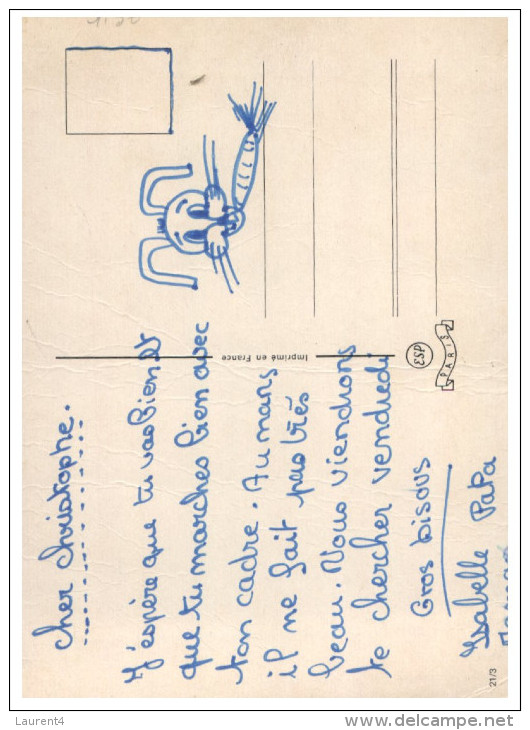 Cher Christophe.
J'espère que tu vas bien et
que tu marches bien avec
ton cadre. Au mans
il ne fait pas très
beau. Nous viendrons
te chercher vendredi
Gros bisous
Isabelle Papa
Imprimé en France
ESP
PARIS
21/3
Laurent4
www.delcampe.net